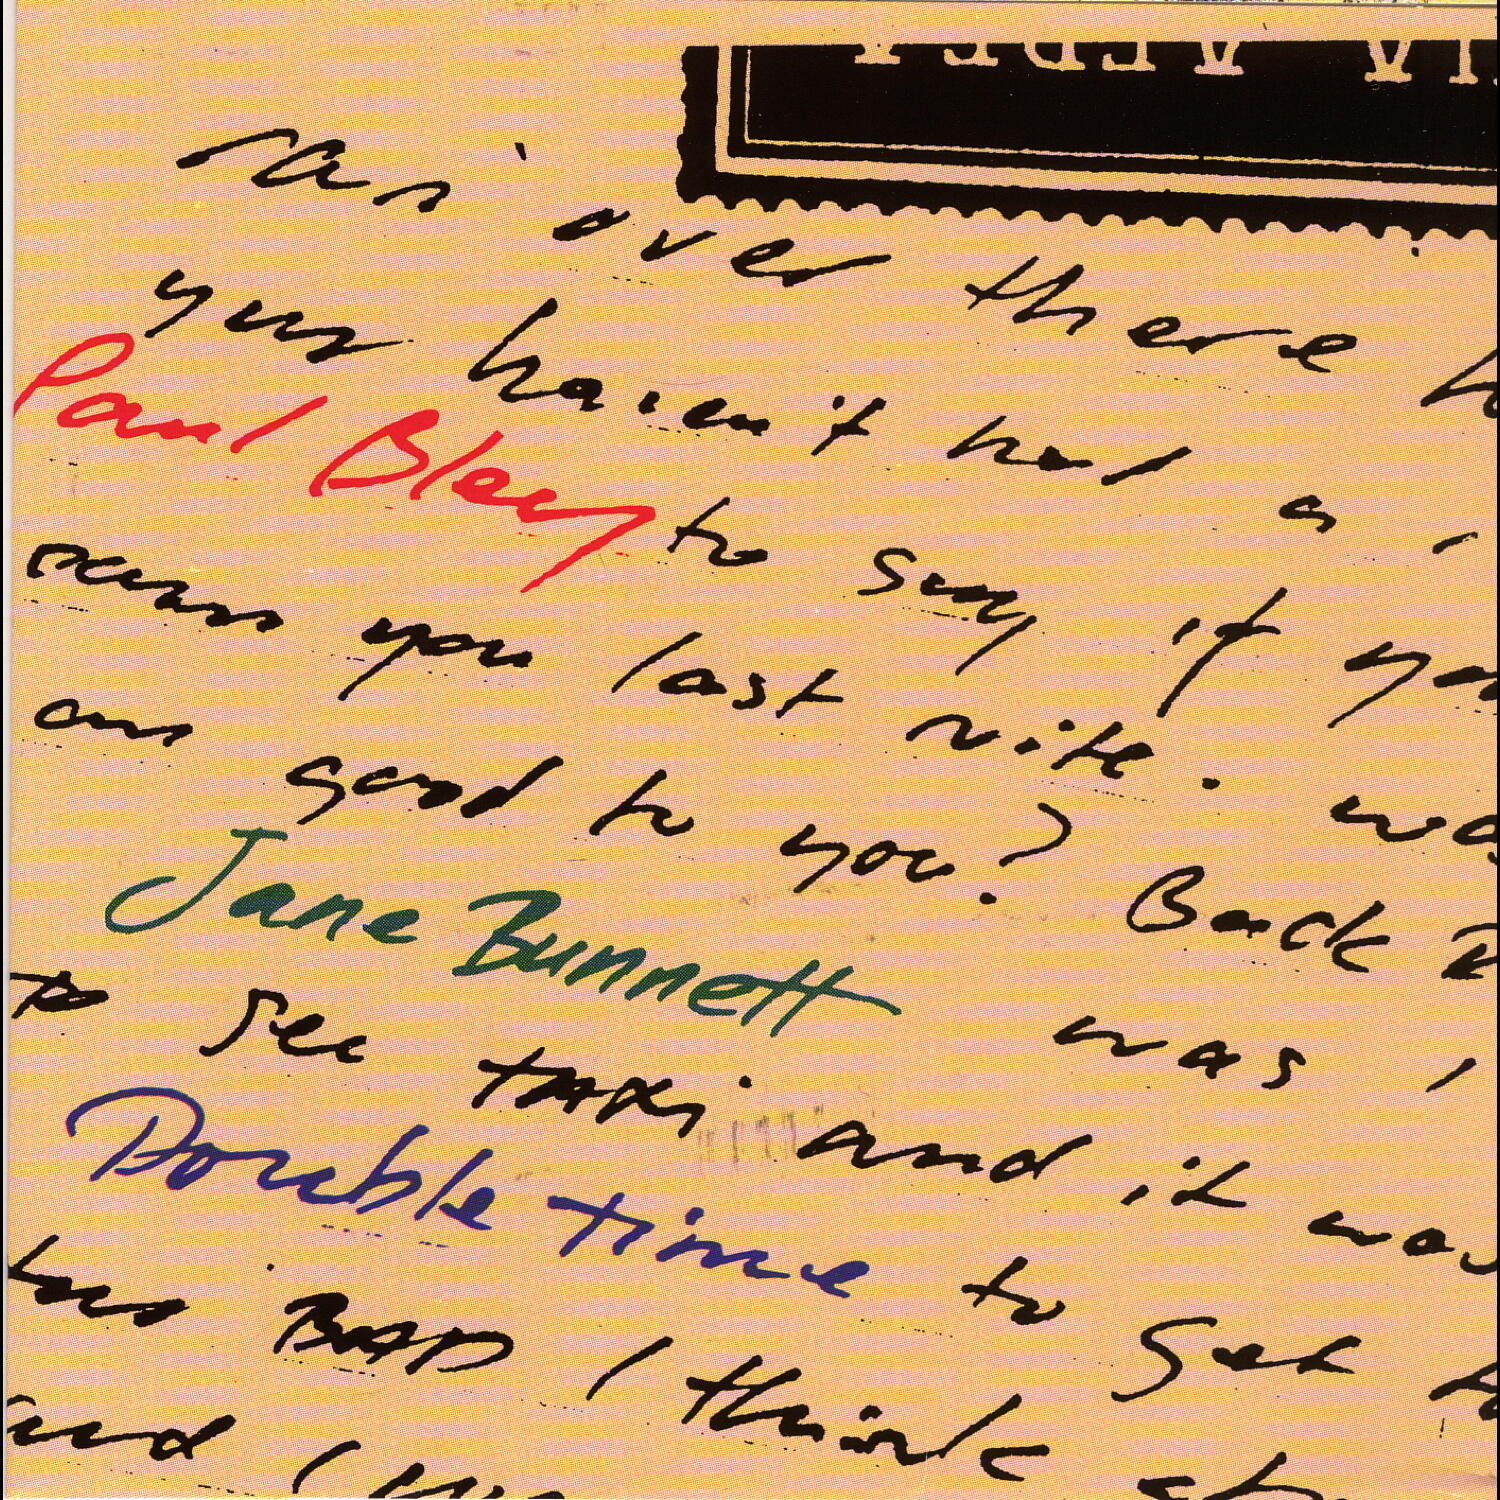 ran over there
you haven't had a
Paul Bley to say if yo
you last nite. wa
good to you? Back
Jane Bunnett was
to see taxi and it was
Double time to get
BAD I think
and I